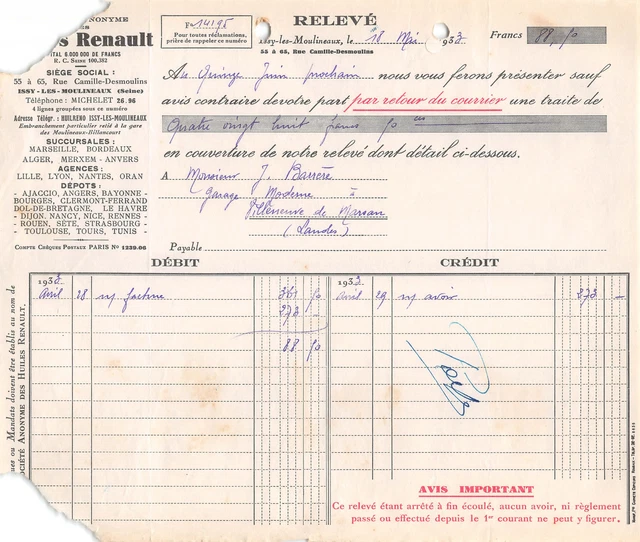 ANONYME
s Renault
ITAL 6.000 000 DE FRANCS
R. C. SEINE 100.382
SIÈGE SOCIAL :
55 à 65, Rue Camille-Desmoulins
ISSY-LES-MOULINEAUX (Seine)
Téléphone : MICHELET 26.96
4 lignes groupées sous ce numéro
Adresse Télégr. : HUILRENO ISSY-LES-MOULINEAUX
Embranchement particulier relié à la gare
des Moulineaux-Billancourt
SUCCURSALES :
MARSEILLE, BORDEAUX
ALGER, MERXEM - ANVERS
AGENCES :
LILLE, LYON, NANTES, ORAN
DÉPOTS :
- AJACCIO, ANGERS, BAYONNE -
BOURGES, CLERMONT-FERRAND
DOL-DE-BRETAGNE, LE HAVRE
- DIJON, NANCY, NICE, RENNES -
- ROUEN, SÈTE, STRASBOURG -
- TOULOUSE, TOURS, TUNIS -
COMPTE CHÈQUES POSTAUX PARIS N° 1239.06
F° 14195
Pour toutes réclamations,
prière de rappeler ce numéro
RELEVÉ
Issy-les-Moulineaux, le 18 Mai 1933
55 à 65, Rue Camille-Desmoulins
Francs 88,50
Au Quinze Juin prochain nous vous ferons présenter sauf
avis contraire de votre part par retour du courrier une traite de
Quatre vingt huit francs 50 ces
en couverture de notre relevé dont détail ci-dessous.
A Monsieur J. Barrère
Garage Moderne à
Villeneuve de Marsan
(Landes)
Payable
DÉBIT
1933
Avril 28 n/ facture 361 50
273 -
88 50
CRÉDIT
1933
Avril 29 n/ avoir 273 -
AVIS IMPORTANT
Ce relevé étant arrêté à fin écoulé, aucun avoir, ni règlement
passé ou effectué depuis le 1er courant ne peut y figurer.
ques ou Mandats doivent être établis au nom de
SOCIÉTÉ ANONYME DES HUILES RENAULT.